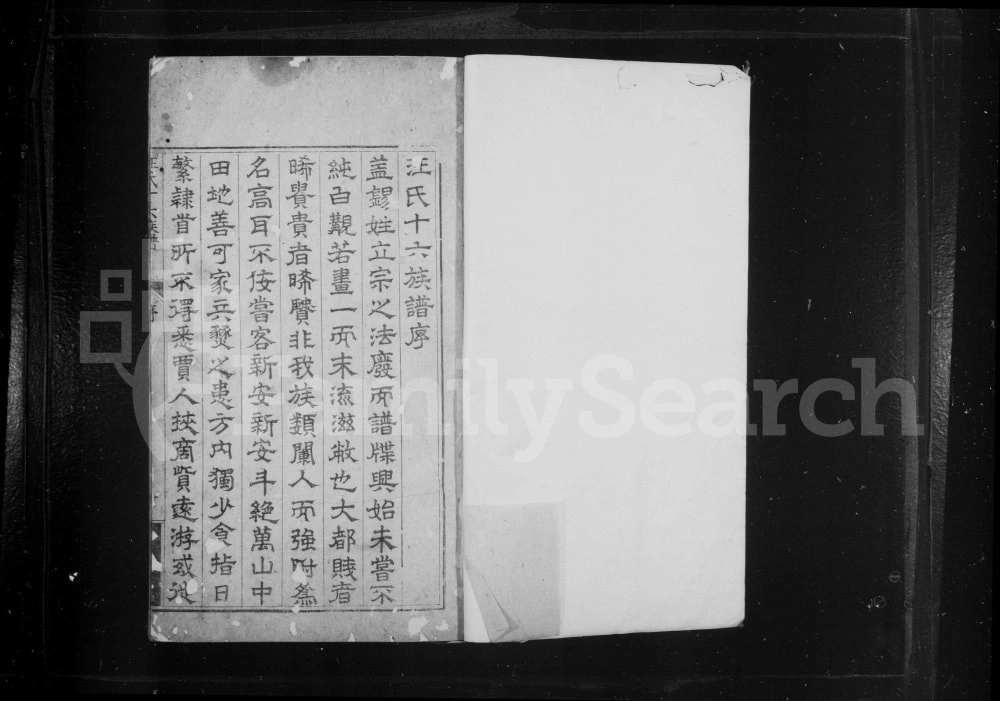 汪氏十六族譜序
盖錫姓立宗之法廢而譜牒興始未嘗不
純白覿若畫一而末流滋敝也大都賤者
晞貴貴者晞賢非我族類闌人而強附為
名高耳不佞嘗客新安新安斗絕萬山中
田地善可家兵燹之患方内獨少食指日
繁隷首所不得悉賈人挾啇貲遠游或從
汪氏十六族譜
序
FamilySearch